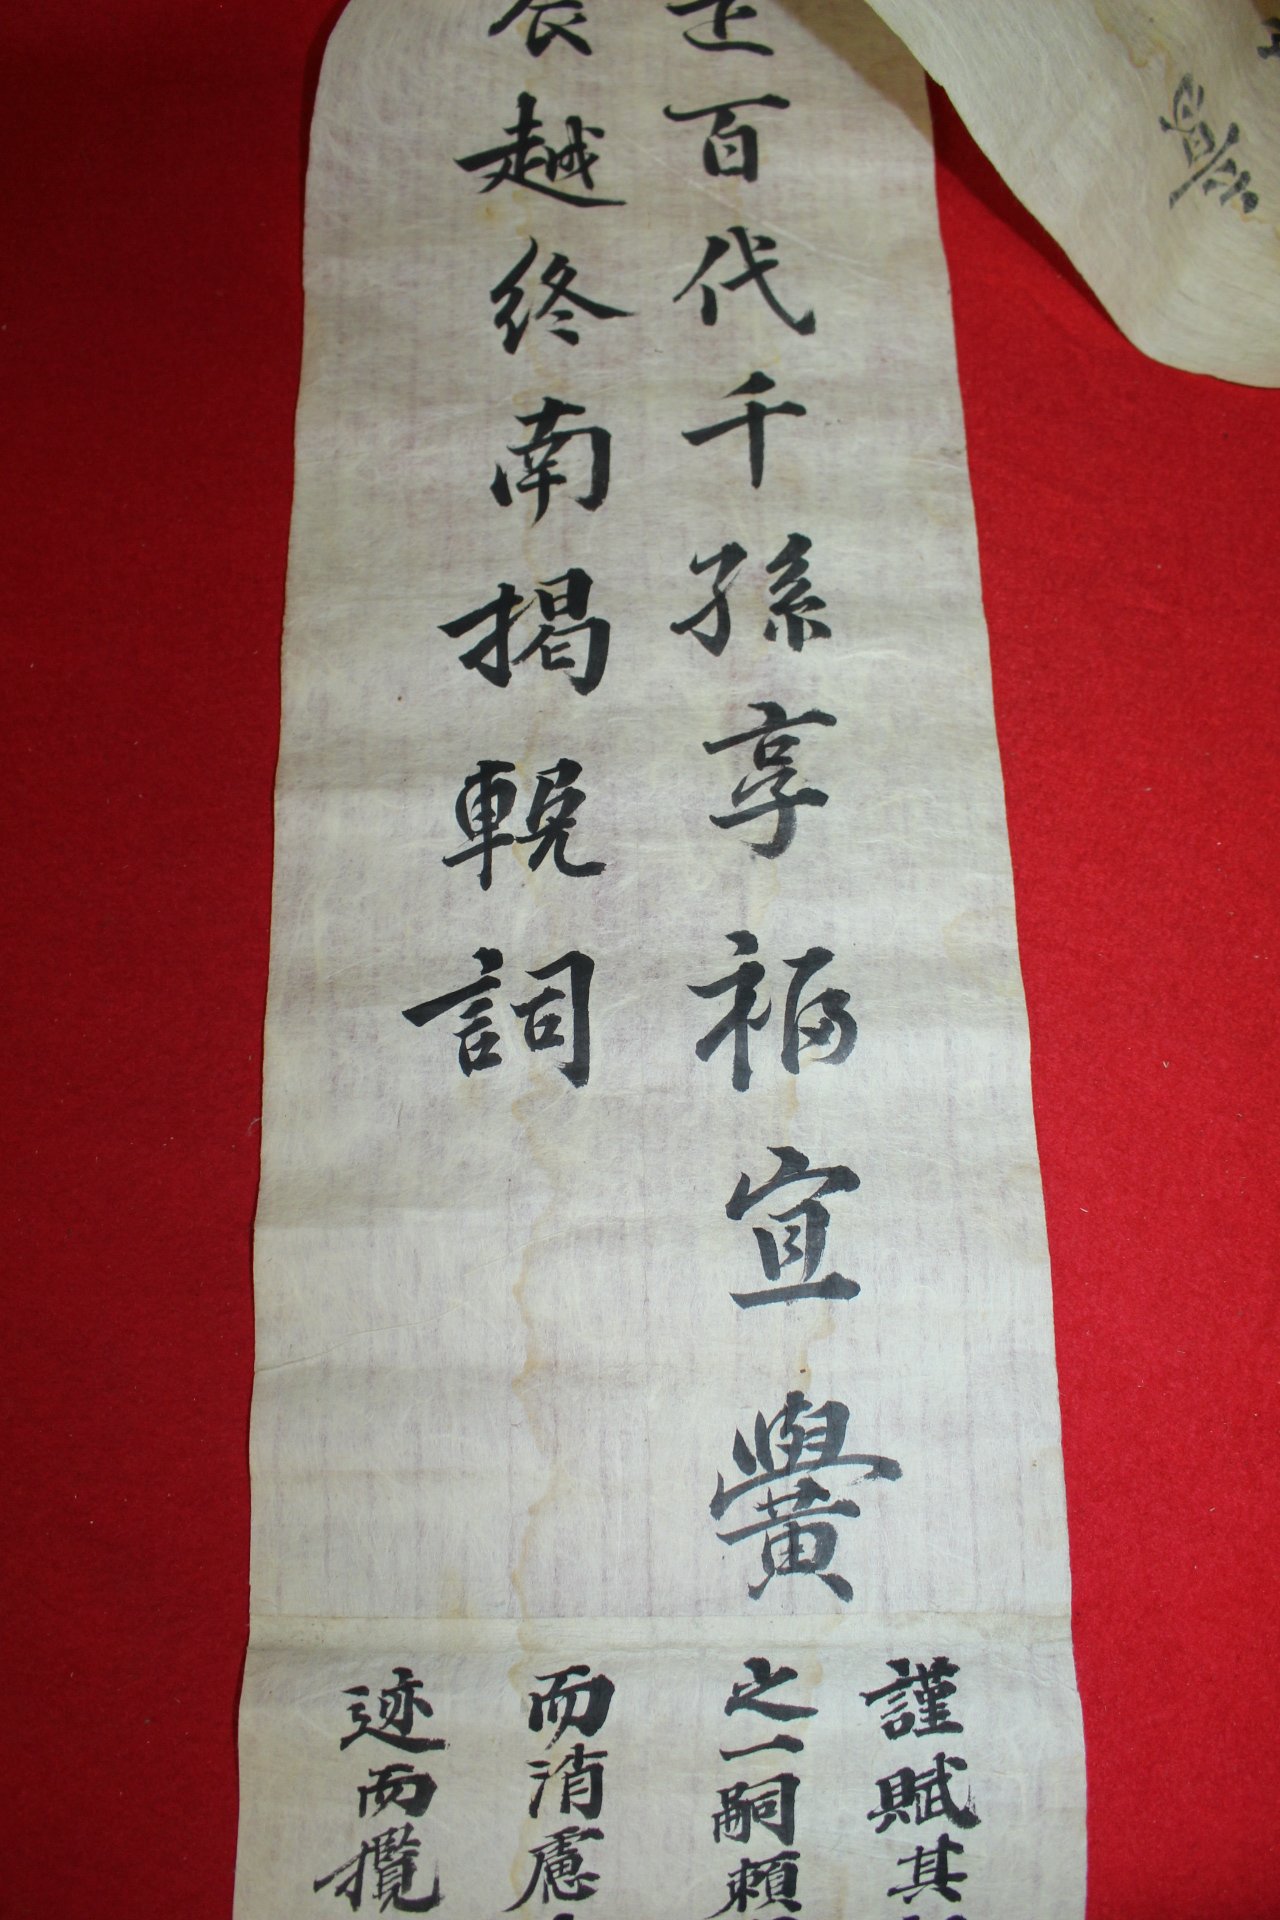 百代千孫享福宜黌
越終南揭輓詞
謹賦其
之一嗣賴
而消慮
迹而攬